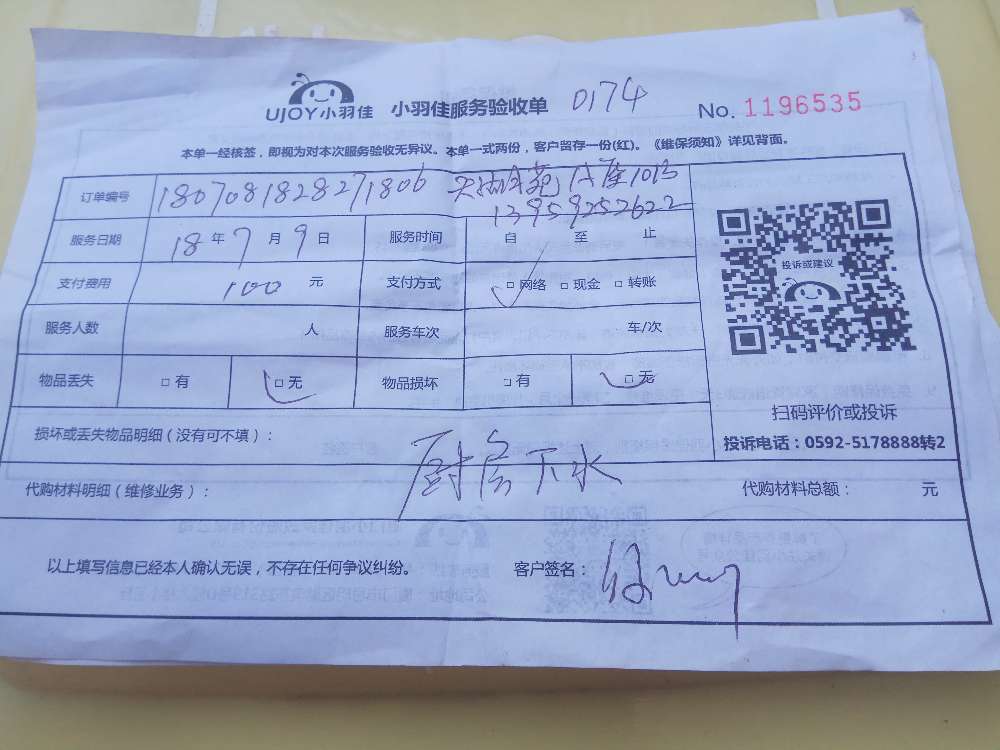 UJOY小羽佳 小羽佳服务验收单 0174 No. 1196535
本单一经核签，即视为对本次服务验收无异议。本单一式两份，客户留存一份(红)。《维保须知》详见背面。
订单编号 1807081828271806
13959252622
服务日期 18 年 7 月 9 日 服务时间 自 至 止
投诉或建议
支付费用 100 元 支付方式 □网络 □现金 □转账
服务人数 人 服务车次 车/次
物品丢失 □有 □无 物品损坏 □有 □无
扫码评价或投诉
损坏或丢失物品明细（没有可不填）： 投诉电话：0592-5178888转2
厨房下水
代购材料明细（维修业务）： 代购材料总额： 元
以上填写信息已经本人确认无误，不存在任何争议纠纷。 客户签名：